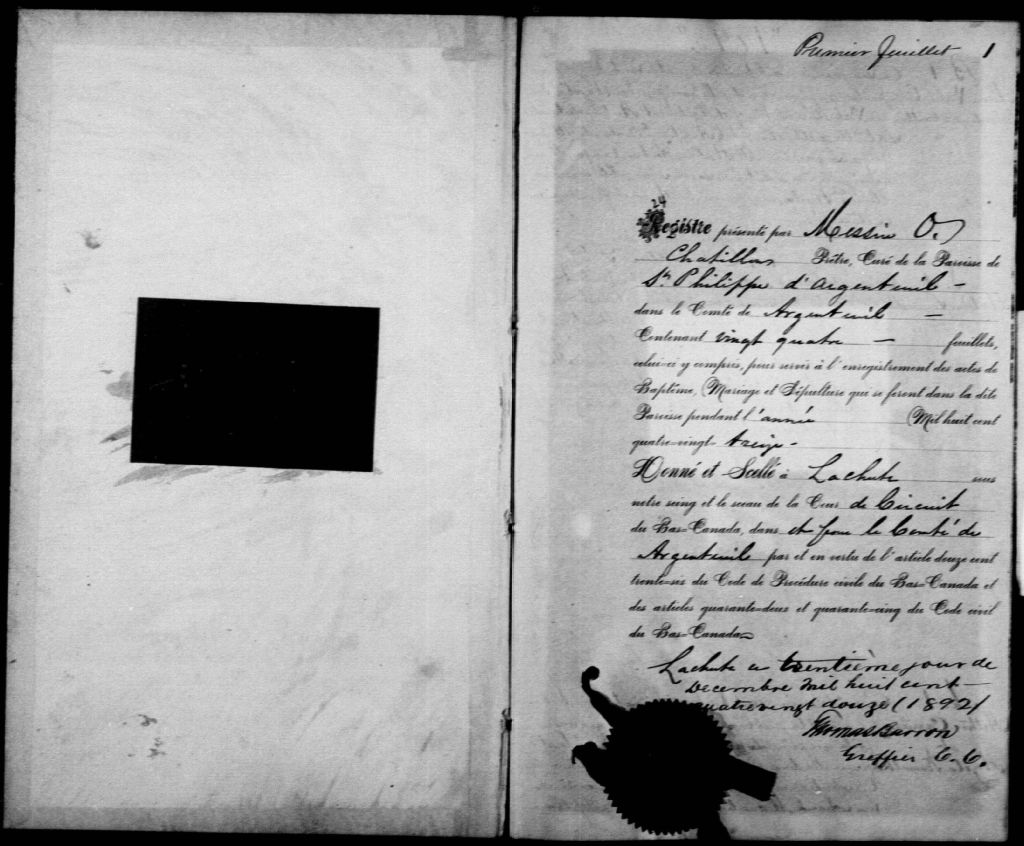 Premier feuillet 1
24
Registre présenté par Messire O.
Chatillon Prêtre, Curé de la Paroisse de
St Philippe d'Argenteuil -
dans le Comté de Argenteuil -
Contenant vingt quatre - feuillets,
celui-ci y compris, pour servir à l'enregistrement des actes de
Baptême, Mariage et Sépulture qui se feront dans la dite
Paroisse pendant l'année Mil huit cent
quatre-vingt- treize -
Donné et Scellé à Lachute sous
notre seing et le sceau de la Cour de Circuit
du Bas-Canada, dans et pour le Comté de
Argenteuil par et en vertu de l'article douze cent
trente-six du Code de Procédure civile du Bas-Canada et
des articles quarante-deux et quarante-cinq du Code civil
du Bas-Canada
Lachute ce trentième jour de
Decembre Mil huit cent
quatrevingt douze (1892)
Thomas Barron
Greffier C. C.